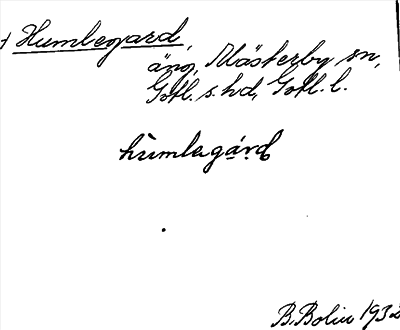 + Humbegard,
äng, Mästerby sn,
Gotl. s. hd, Gotl. l.
hùmlagá̱rd
B. Bolin 1932